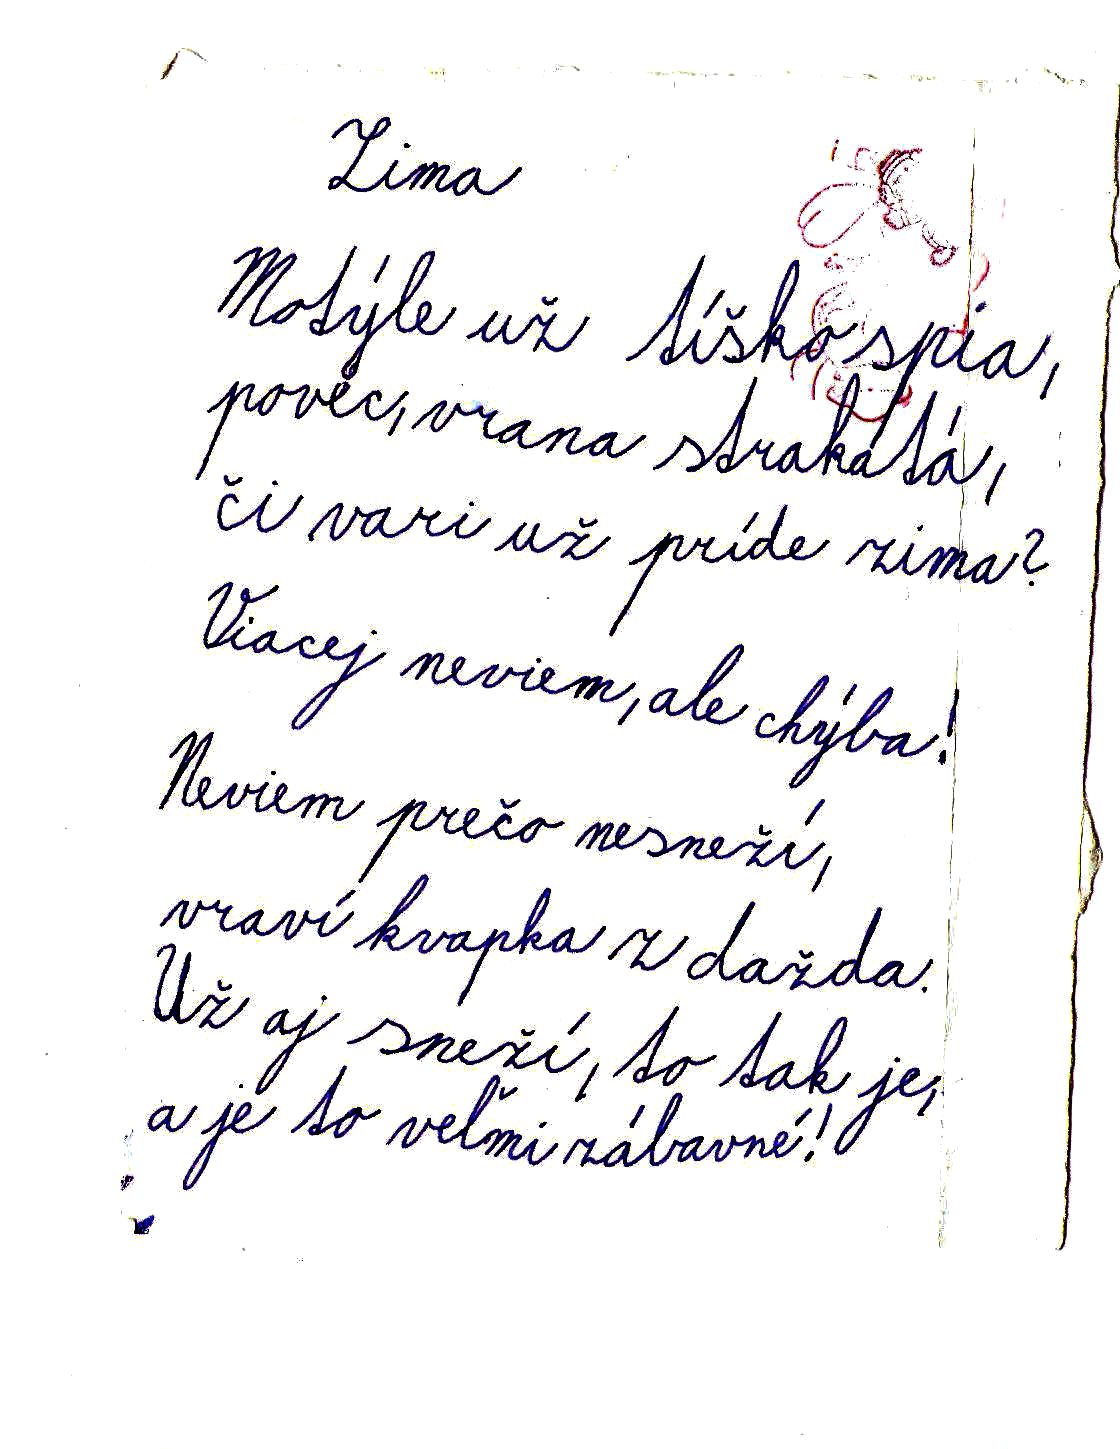 Zima
Motýle už tíško spia,
povec, vrana strakátá,
či vari už príde zima?
Viacej neviem, ale chýba!
Neviem prečo nesneží,
vraví kvapka z dažda.
Už aj sneží, to tak je,
a je to veľmi zábavné!